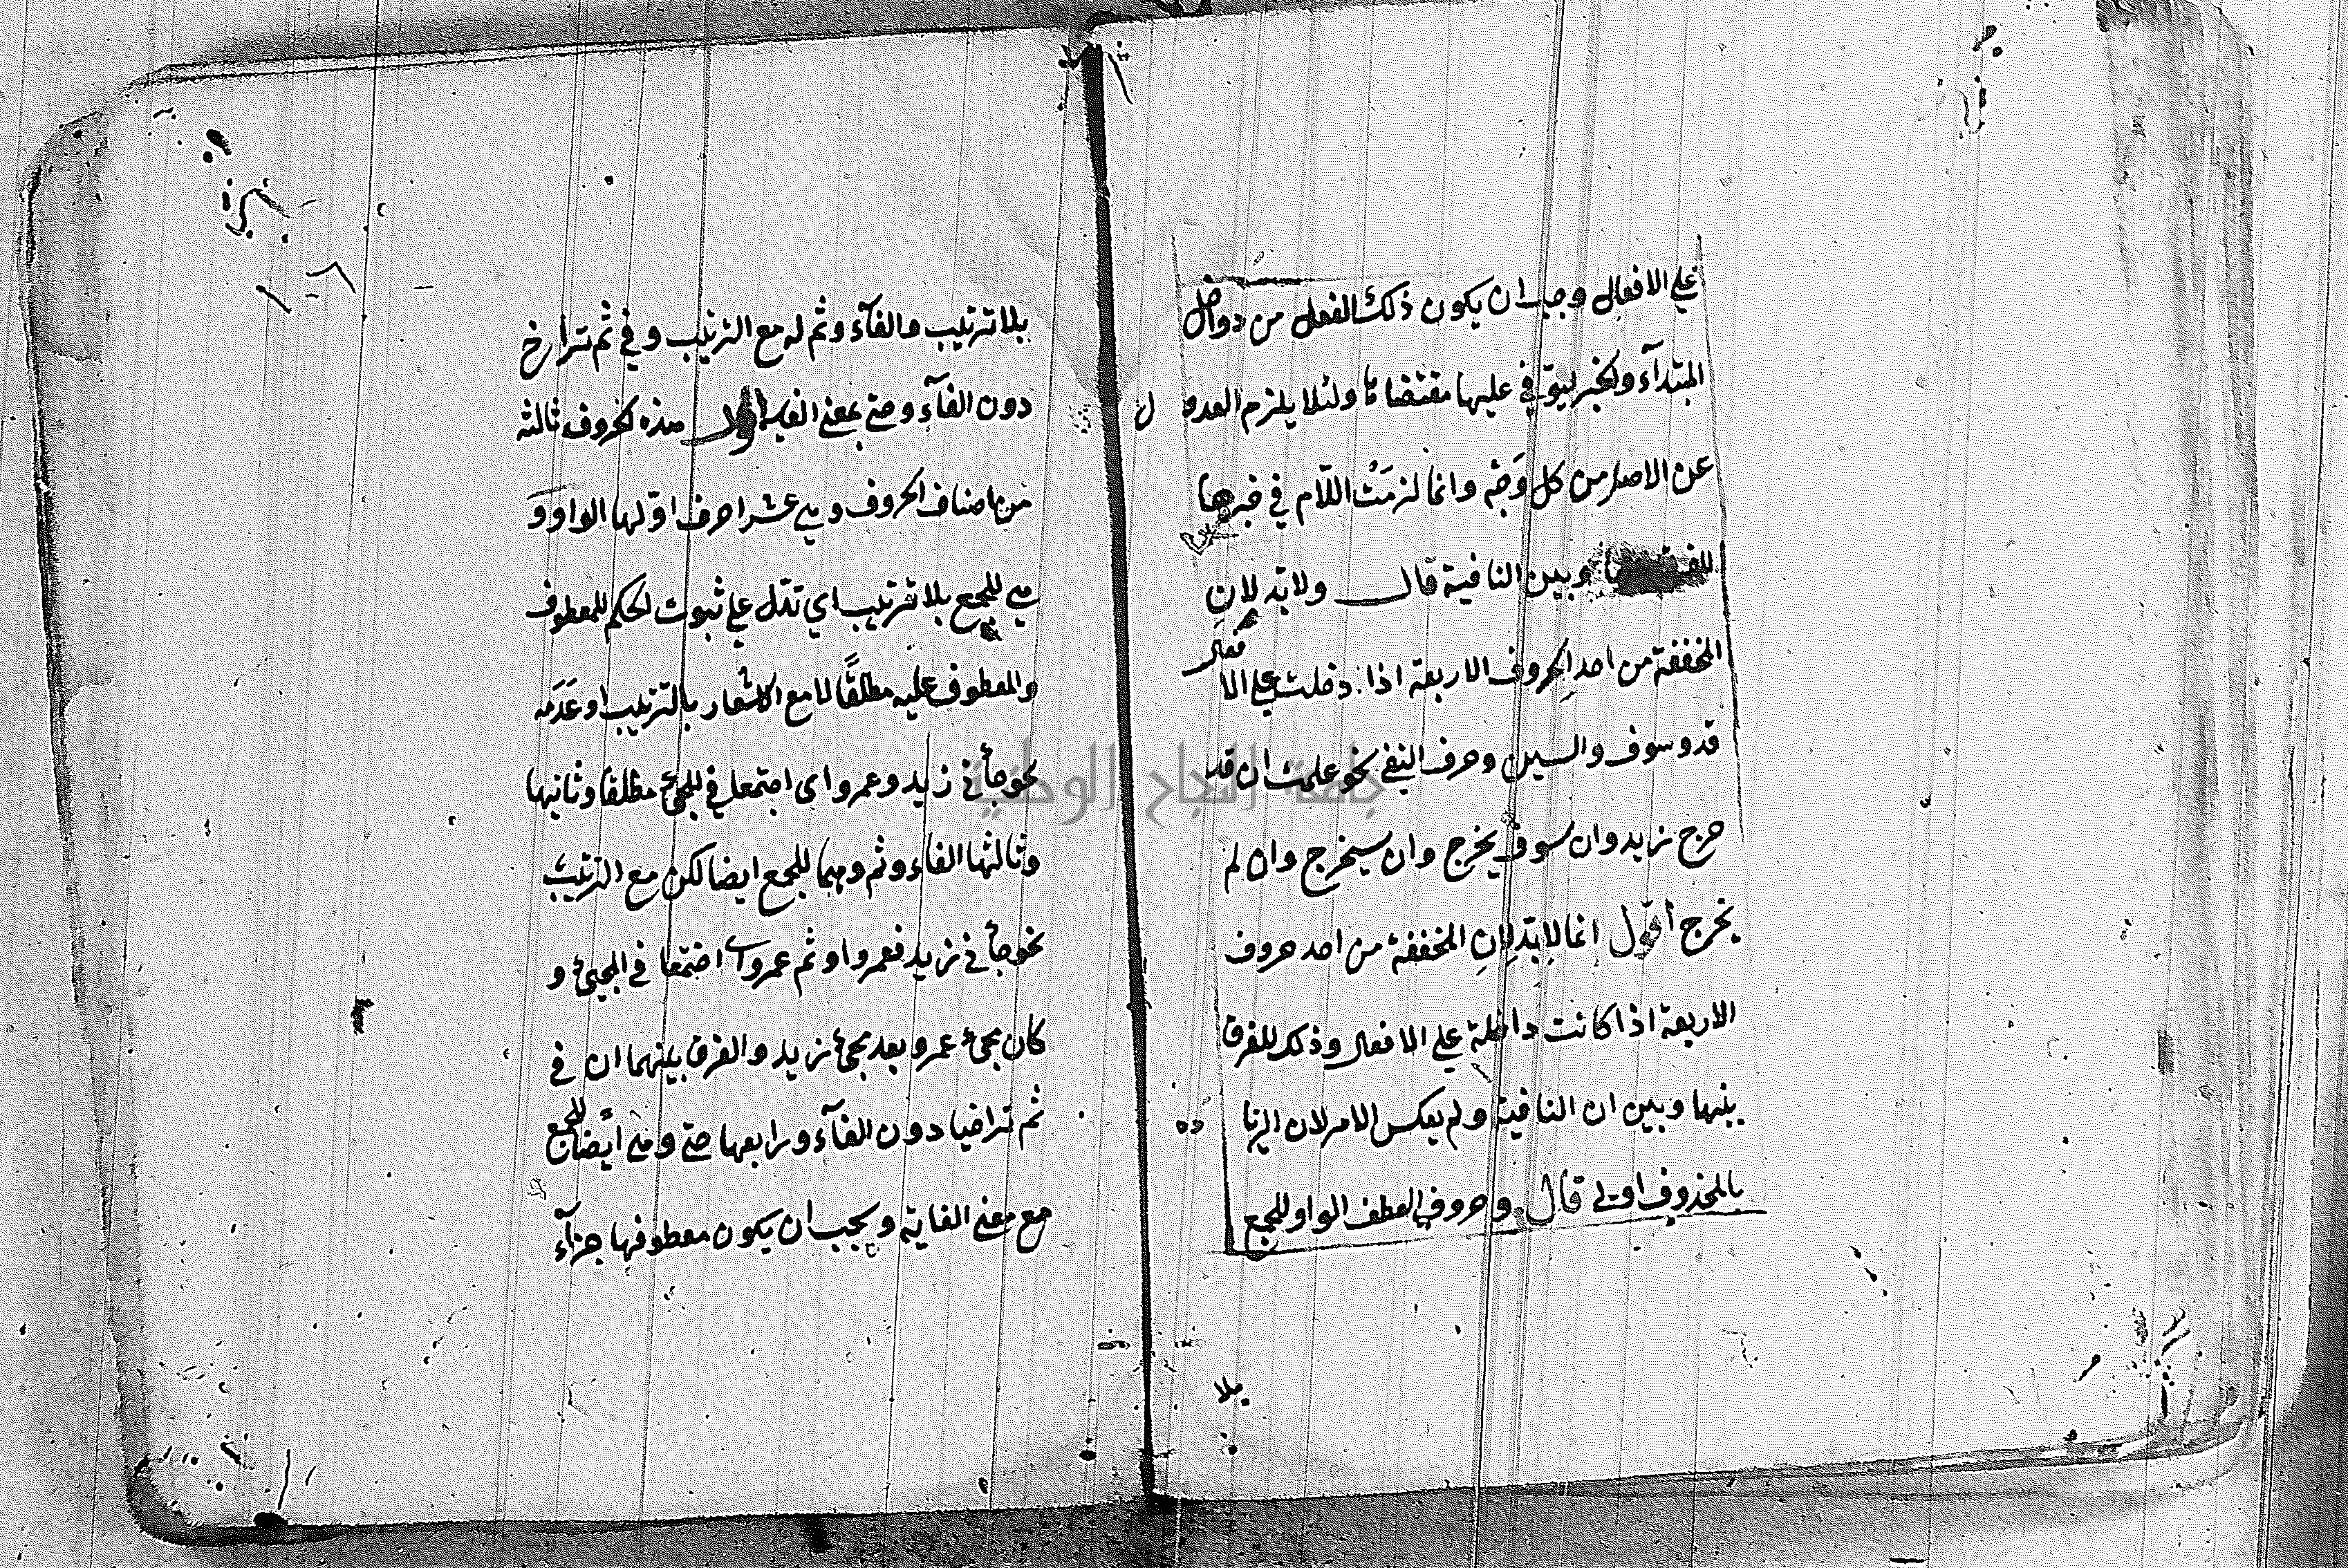 على الافعال وجب ان يكون ذلك الفعل من دواخل
المبتدآء والخبر ليتوفى عليها مقتضاها ولئلا يلزم العدول
عن الاصل من كل وَجْهٍ وانما لزمَتْ اللّام في خبرها
وبين النافية قال ولابد لِانِ
المخففة من احدِ الحروف الاربعة اذا دخلت على الافعال
قد وسوف والسين وحرف النفي نحو علمت ان قد
خرج زيد وان سوف يخرج وان سيخرج وان لم
يخرج أقول انما لابدّ لِانِ المخففة من احد حروف
الاربعة اذا كانت داخلة على الافعال وذلك للفرق
بينها وبين ان النافية ولم يعكس الامر لان الزيادة
بالمحذوف اولى قال وحروف العطف الواو للجمع
بلا
بلا ترتيب والفآء وثم له مع الترتيب وفي ثم تراخ
دون الفآء وحتى بمعنى الغاية أقول هذه الحروف ثالثه
من اصناف الحروف وهي عشر احرف اوّلها الواو و
هي للجمع بلا ترتيب اي تدل على ثبوت الحكم للمعطوف
والمعطوف عليه مطلقًا لا مع الاشعار بالترتيب او عَدَمَه
نحو جأني زيد وعمرو اى اجتمعا في المجئ مطلقا وثانيها
وثالثها الفاء وثم وهما للجمع ايضا لكن مع الترتيب
نحو جأني زيد فعمرو او ثم عمرو اى اجتمعا في المجئ و
كان مجئ عمرو بعد مجئ زيد والفرق بينهما ان في
ثم تراخيا دون الفآء ورابعها حتى وهي ايضا للجمع
مع معنى الغاية ويجب ان يكون معطوفها جزآء
جامعة النجاح الوطنية